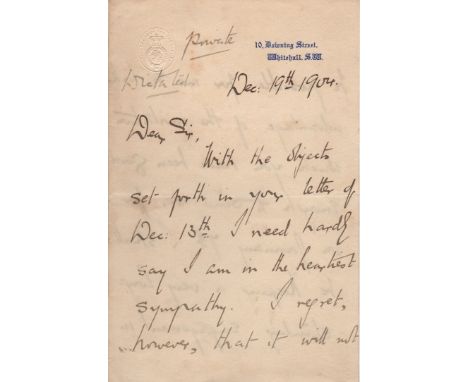 Private
10, Downing Street,
Whitehall, S.W.
Dictated
Dec: 19th 1904.
Dear Sir,
With the objects
set forth in your letter of
Dec: 13th I need hardly
say I am in the heartiest
sympathy. I regret,
however, that it will not